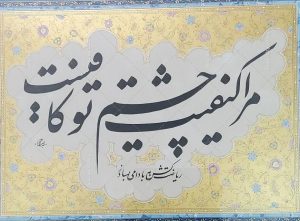 مرا کیفیت چشم تو کافیست
ریاضت کش ببادامی بسازد